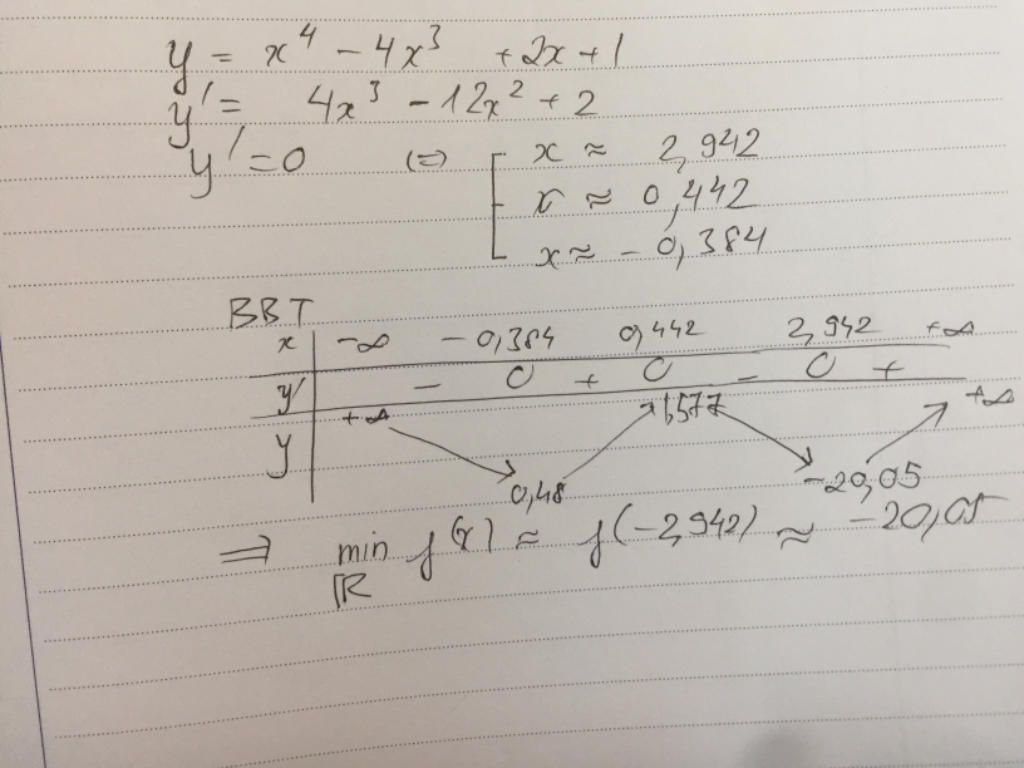 y = x⁴ - 4x³ + 2x + 1
y' = 4x³ - 12x² + 2
y' = 0 (=) [ x ≈ 2,942
x ≈ 0,442
x ≈ - 0,384
BBT
x -∞ - 0,384 0,442 2,942 +∞
y' - 0 + 0 - 0 +
y +∞ 0,48 1,577 -20,05 +∞
⇒ min f(x) ≈ f(-2,942) ≈ -20,05
ℝ